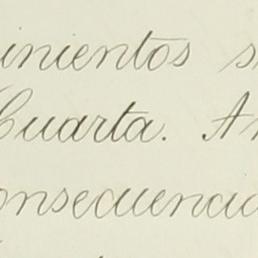 inientos s
Cuarta. A
onsequencia